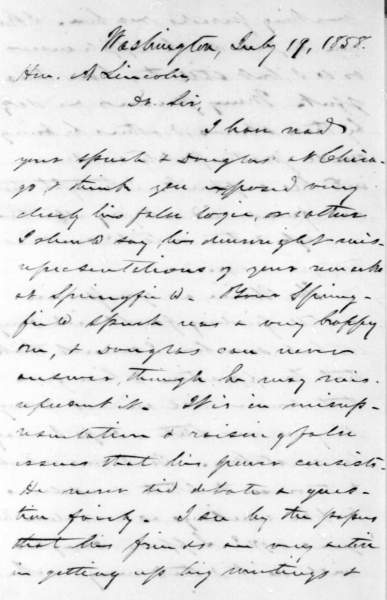 Washington, July 19, 1858.
Hon. A Lincoln,
Dr. Sir,
I have read
your speech & Douglas' at Chica-
go & think you exposed very
clearly his false logic, or rather
I should say his downright mis-
representations of your remarks
at Springfield. Your Spring-
field speech was a very happy
one, & Douglas can never
answer, though he may mis-
represent it. It is in misrep-
resentation & raising false
issues that his power consists.
He never did debate a ques-
tion fairly. I see by the papers
that his friends are very active
in getting up big meetings &